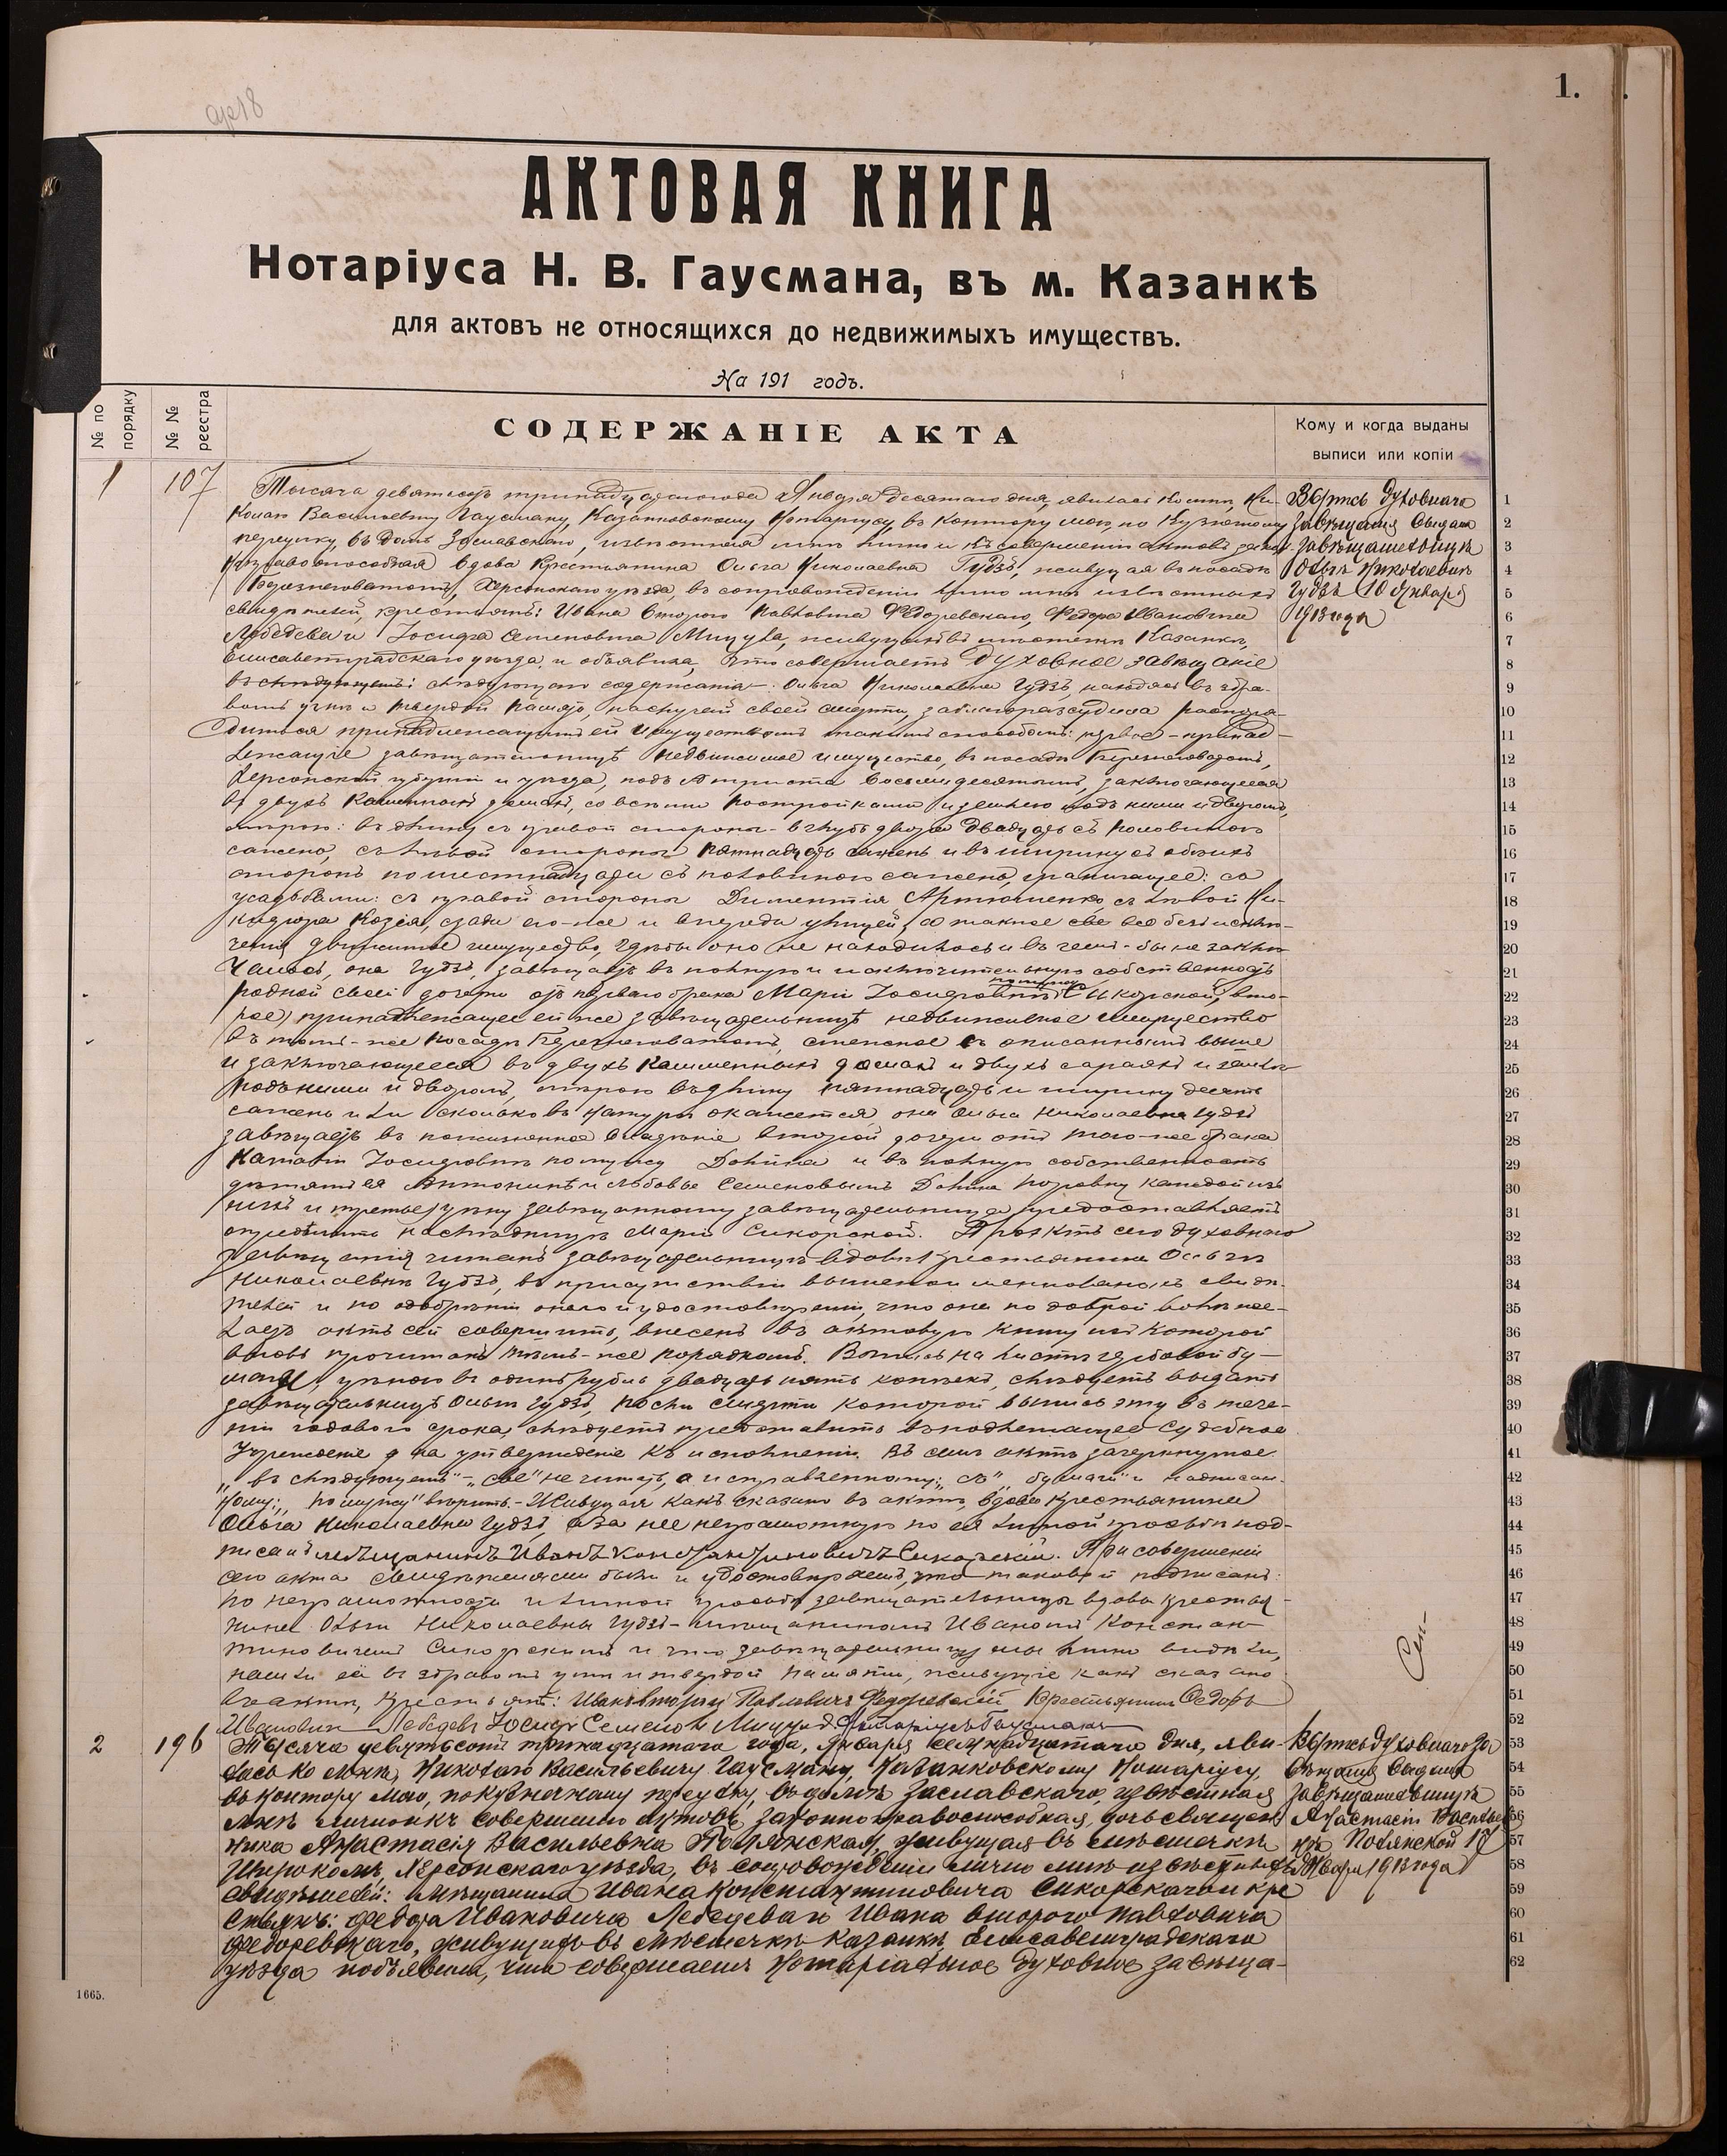 1.
АКТОВАЯ КНИГА
Нотаріуса Н. В. Гаусмана, въ м. Казанкѣ
для актовъ не относящихся до недвижимыхъ имуществъ.
На 191 годъ.
№ по порядку
№ № реестра
СОДЕРЖАНІЕ АКТА
Кому и когда выданы
выписи или копіи
1
107
Тысяча девятьсотъ тринадцатаго года Января десятаго дня, явилась ко мнѣ, Ни-
колаю Васильевичу Гаусману, Казанковскому Нотаріусу, въ контору мою, по Кузнечному
переулку, въ домѣ Заславскаго, извѣстная мнѣ лично и къ совершенію актовъ закон-
но правоспособная вдова крестьянина Ольга Николаевна Гудзь, живущая въ посадѣ
Березнеговатомъ, Херсонскаго уѣзда, въ сопровожденіи лично мнѣ извѣстныхъ
свидѣтелей, крестьянъ: Ивана Второго Павловича Федоревскаго, Федора Ивановича
Лебедева и Іосифа Семеновича Мицула, живущихъ въ мѣстечкѣ Казанкѣ,
Елисаветградскаго уѣзда и объявила, что совершаетъ духовное завѣщаніе
въ слѣдующемъ: слѣдующаго содержанія: Ольга Николаевна Гудзь, находясь въ здра-
вомъ умѣ и твердой памяти, на случай своей смерти, заблагоразсудила распоря-
диться принадлежащимъ ей имуществомъ такимъ способомъ: первое - принад-
лежащее завѣщательницѣ недвижимое имущество, въ посадѣ Березнеговатомъ,
Херсонской губерніи и уѣзда, подъ № триста восемьдесятымъ, заключающееся
въ двухъ каменныхъ домахъ, со всѣми постройками и землею подъ ними и дворомъ,
мѣрою: въ длину съ правой стороны - вглубь двора двадцать съ половиною
сажень, съ лѣвой стороны пятнадцать сажень и въ ширину съ обѣихъ
сторонъ по шестнадцати съ половиною сажень, граничащее: съ
усадьбами: съ правой стороны Дементія Артюшенко, съ лѣвой Ни-
кифора Козея, сзади его-же и впереди улицей, а также свое все безъ исклю-
ченія движимое имущество, гдѣ бы оно не находилось и въ чемъ-бы не заклю-
чалось, она Гудзь, завѣщаетъ въ полную и исключительную собственность
родной своей дочери отъ перваго брака Маріи Іосифовнѣ по мужу Сикорской; вто-
рое) принадлежащее ей-же завѣщательницѣ недвижимое имущество
въ томъ-же посадѣ Березнеговатомъ, смежное съ описаннымъ выше
и заключающееся въ двухъ каменныхъ домахъ и двухъ сараяхъ и землею
подъ ними и дворомъ, мѣрою въ длину пятнадцать и ширину десять
сажень или сколько въ натурѣ окажется, она Ольга Николаевна Гудзь
завѣщаетъ въ пожизненное владѣніе второй дочери отъ того-же брака
Іосифовнѣ по мужу и въ полную собственность
дѣтямъ ея Антонинѣ и Любовѣ Семеновымъ поровну каждой изъ
нихъ и третье)
наслѣдницѣ Маріи Сикорской. Проэктъ сего духовнаго
завѣщанія читанъ завѣщательницѣ вдовѣ крестьянина Ольгѣ
Николаевнѣ Гудзь, въ присутствіи вышепоименованныхъ свидѣ-
телей и по одобреніи онаго и удостовѣреніи, что она по доброй волѣ же-
лаетъ актъ сей совершить, внесенъ въ актовую книгу изъ которой
вновь прочитанъ тѣмъ-же порядкомъ. Выпись на листѣ гербовой бу-
маги, цѣною въ одинъ рубль двадцать пять копѣекъ, слѣдуетъ выдать
завѣщательницѣ Ольгѣ Гудзь, послѣ смерти которой выпись эту въ тече-
ніи годового срока, слѣдуетъ представить въ подлежащее Судебное
Учрежденіе для утвержденія къ исполненію. Въ семъ актѣ зачеркнутое:
„въ слѣдующемъ" - „свое" не читать, а исправленному: „съ", „бумаги" и надписан-
ному: „по мужу" вѣрить. - Живущая какъ сказано въ актѣ, вдова крестьянина
Ольга Николаевна Гудзь, а за нее неграмотную по ея личной просьбѣ под-
писалъ мѣщанинъ Иванъ Константиновичъ Сикорскій. При совершеніи
сего акта свидѣтелями были и удостовѣряемъ, что таковой подписанъ:
по неграмотности и личной просьбѣ завѣщательницы вдовы крестья-
нина Ольги Николаевны Гудзь - мѣщаниномъ Иваномъ Констан-
тиновичемъ Сикорскимъ и что завѣщательницу мы лично видѣли,
нашли её въ здравомъ умѣ и твердой памяти, живущіе какъ сказано
въ актѣ, крестьяне: Иванъ второй Павловичъ Федоревскій Крестьянинъ Федоръ
Ивановичъ Лебедевъ Іосифъ Семенов. Мицул. Нотаріусъ Гаусманъ
Выпись духовнаго
завѣщанія выдана
завѣщательницѣ
Ольгѣ Николаевнѣ
Гудзь 10 Января
1913 года
2
196
Тысяча девятьсотъ тринадцатаго года, Января семнадцатаго дня, яви-
лась ко мнѣ, Николаю Васильевичу Гаусману, Казанковскому Нотаріусу,
въ контору мою, по Кузнечному переулку, въ домѣ Заславскаго, извѣстная
мнѣ лично и къ совершенію актовъ законно правоспособная, дочь священ-
ника Анастасія Васильевна Полянская, живущая въ мѣстечкѣ
Широкомъ, Херсонскаго уѣзда, въ сопровожденіи лично мнѣ извѣстныхъ
свидѣтелей: мѣщанина Ивана Константиновича Сикорскаго и кре
стьянъ: Федора Ивановича Лебедева и Ивана второго Павловича
Федоревскаго, живущихъ въ мѣстечкѣ Казанкѣ, Елисаветградскаго
уѣзда и объявила, что совершаетъ нотаріальное духовное завѣща-
Выпись духовнаго за
вѣщанія выдана
завѣщательницѣ
Анастасіи Васильев
нѣ Полянской 17
Января 1913 года
1
2
3
4
5
6
7
8
9
10
11
12
13
14
15
16
17
18
19
20
21
22
23
24
25
26
27
28
29
30
31
32
33
34
35
36
37
38
39
40
41
42
43
44
45
46
47
48
49
50
51
52
53
54
55
56
57
58
59
60
61
62
1665.